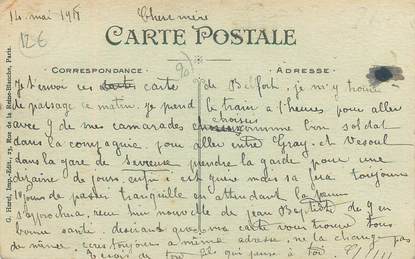 14 mai 191
Chere mère
12€
CARTE POSTALE
CORRESPONDANCE
90
ADRESSE
Je t'envoi ces carte de Belfort, je m'y trouve
de passage ce matin. je prend le train a heures pour aller
avec 9 de mes camarades choisis comme bon soldat
dans la compagnie pour aller entre Gray et Vesoul
dans la gare de prendre la garde pour une
dizaine de jours. enfin c'est guere mais sa fera toujours
10 jours de passés tranquille en attendant la
recu hier nouvelle de jean Baptiste de 9 en
bonne santé. desirant que ma carte vous trouve tous
de même. ecris toujours a même adresse, ne la change pas
ton fils qui pense a toi
G. Huret, Imp.-Edit., 23, Rue de la Reine-Blanche, Paris.